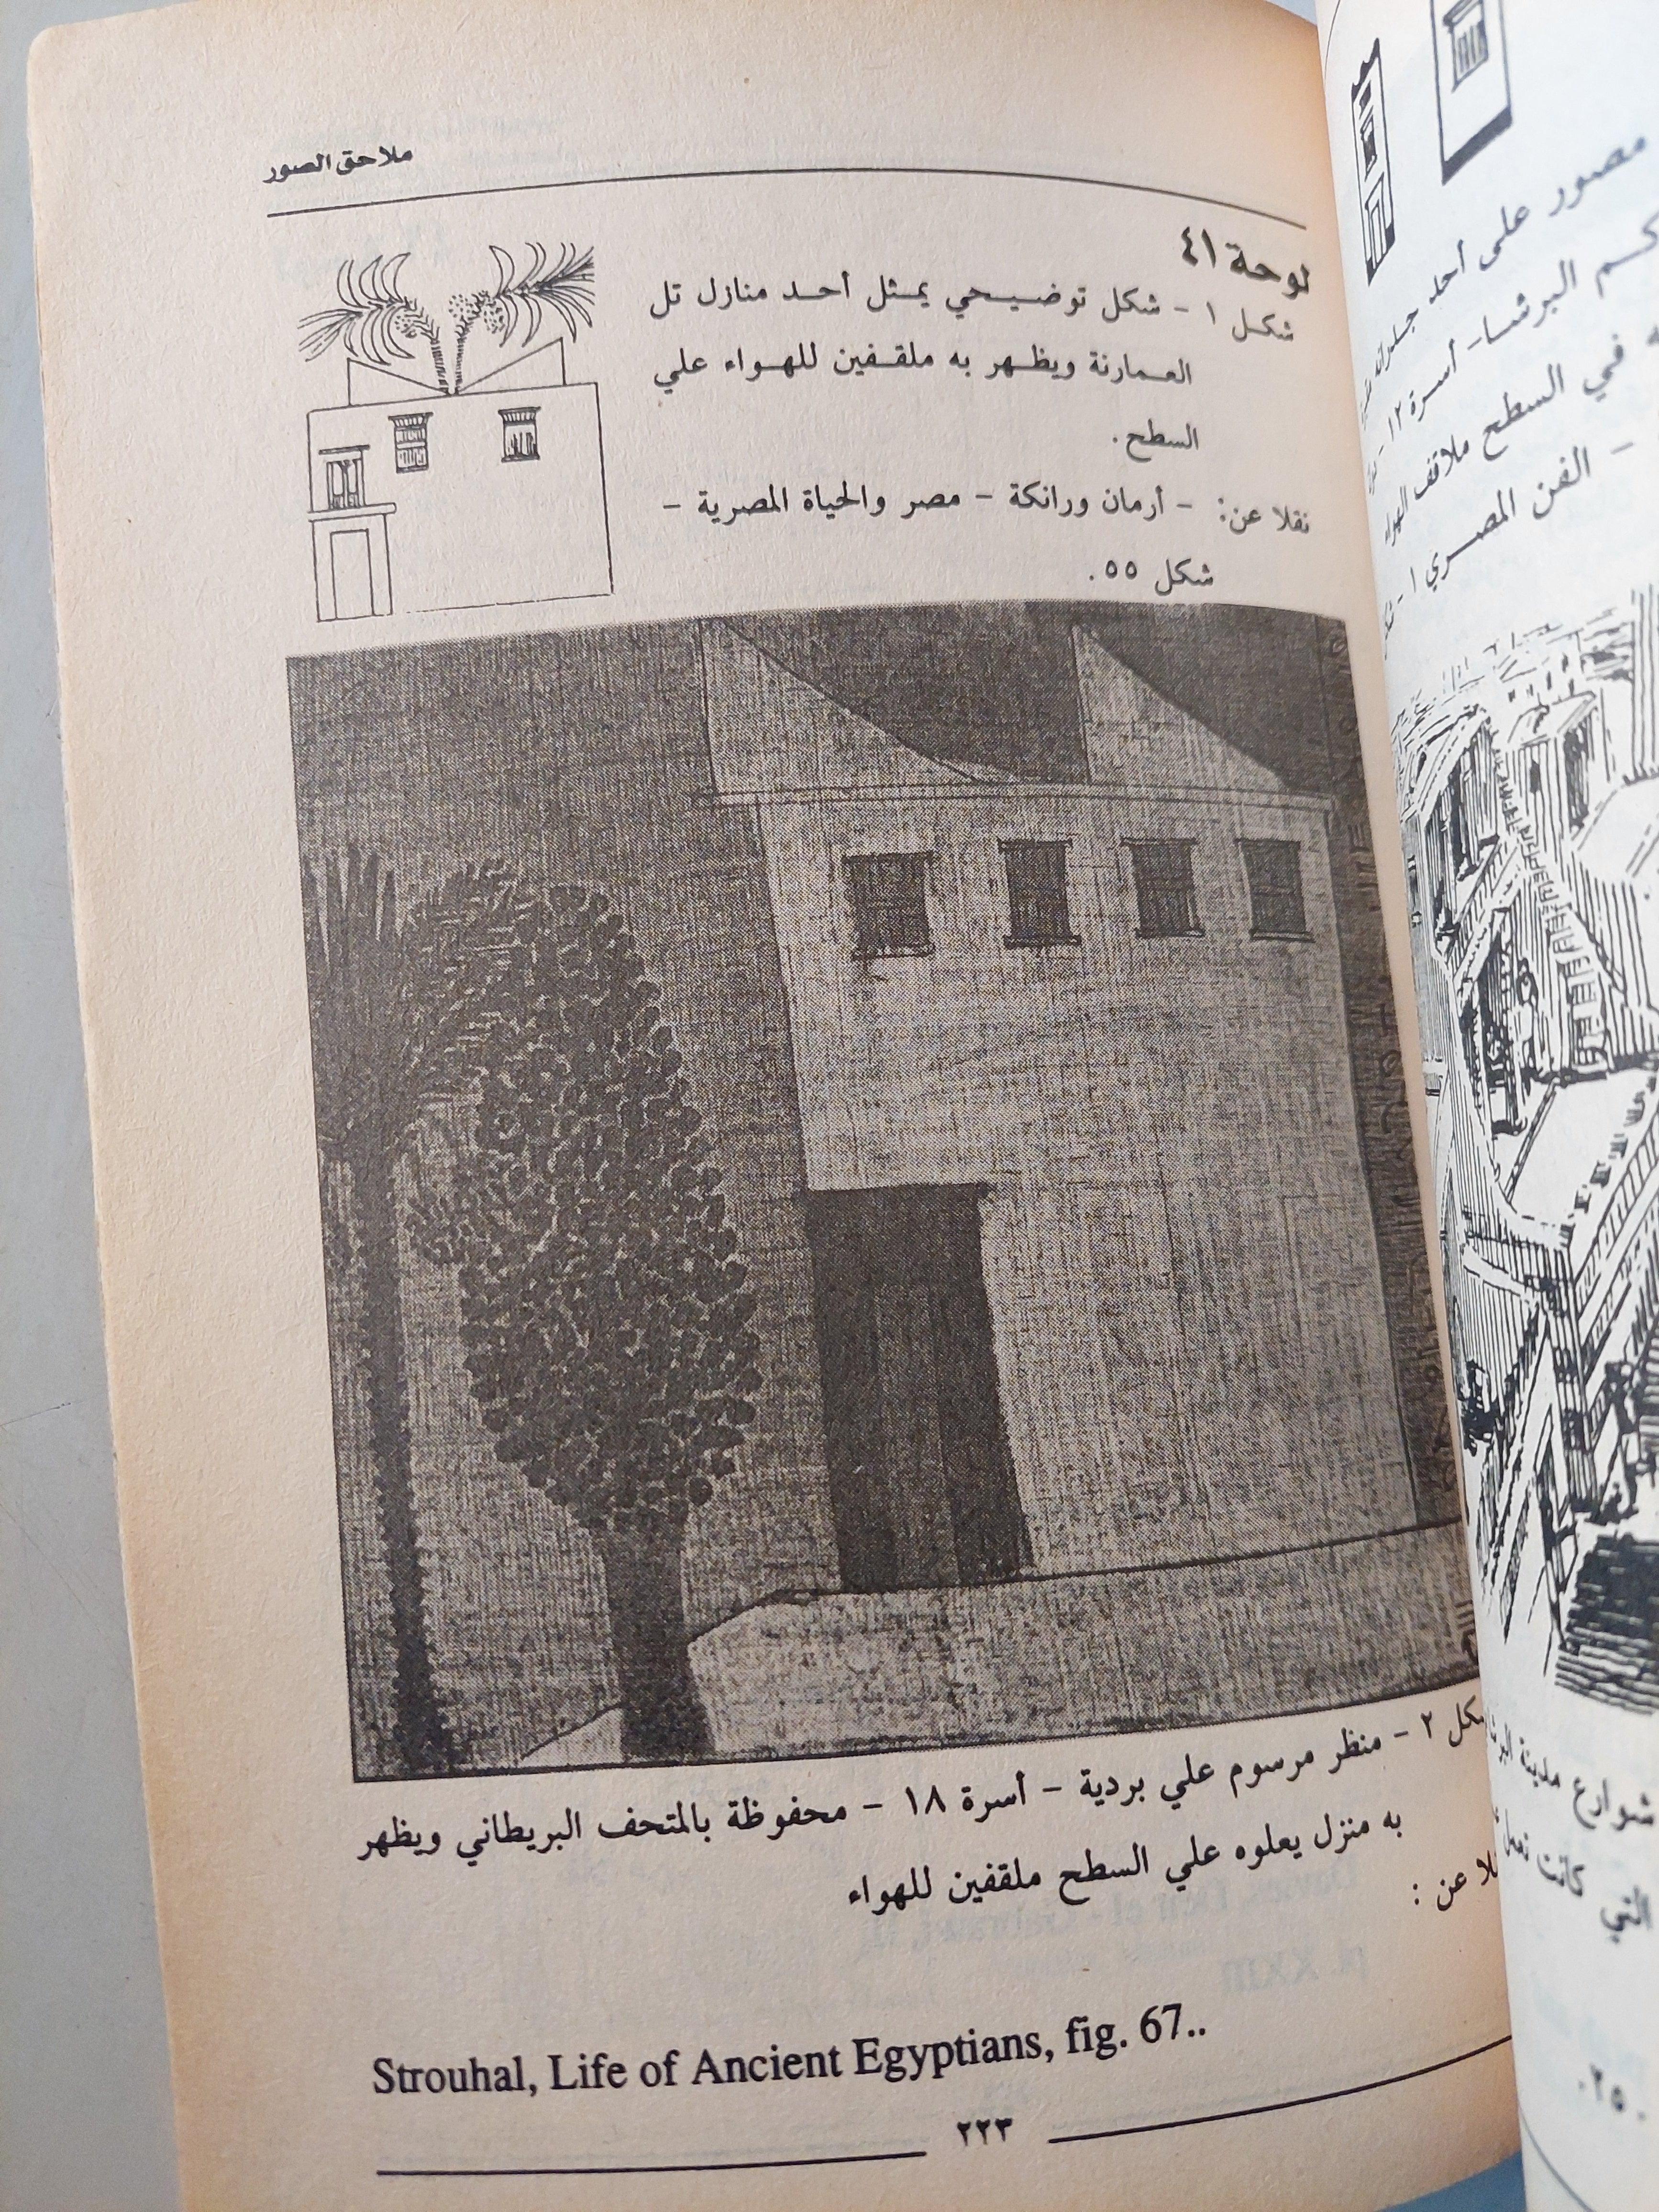 ملاحق الصور
لوحة ٤١
شكل ١ - شكل توضيحي يمثل أحد منازل تل
العمارنة ويظهر به ملقفين للهواء علي
السطح.
نقلا عن: - أرمان ورانكة - مصر والحياة المصرية -
شكل ٥٥.
شكل ٢ - منظر مرسوم علي بردية - أسرة ١٨ - محفوظة بالمتحف البريطاني ويظهر
به منزل يعلوه علي السطح ملقفين للهواء
نقلا عن :
Strouhal, Life of Ancient Egyptians, fig. 67..
٢٢٣
مصور على أحد جدرانه
كم البرشا - أسرة ١٢ -
في السطح ملاقف الهواء
- الفن المصري ١ -
شوارع مدينة
التي كانت
٢٥٠